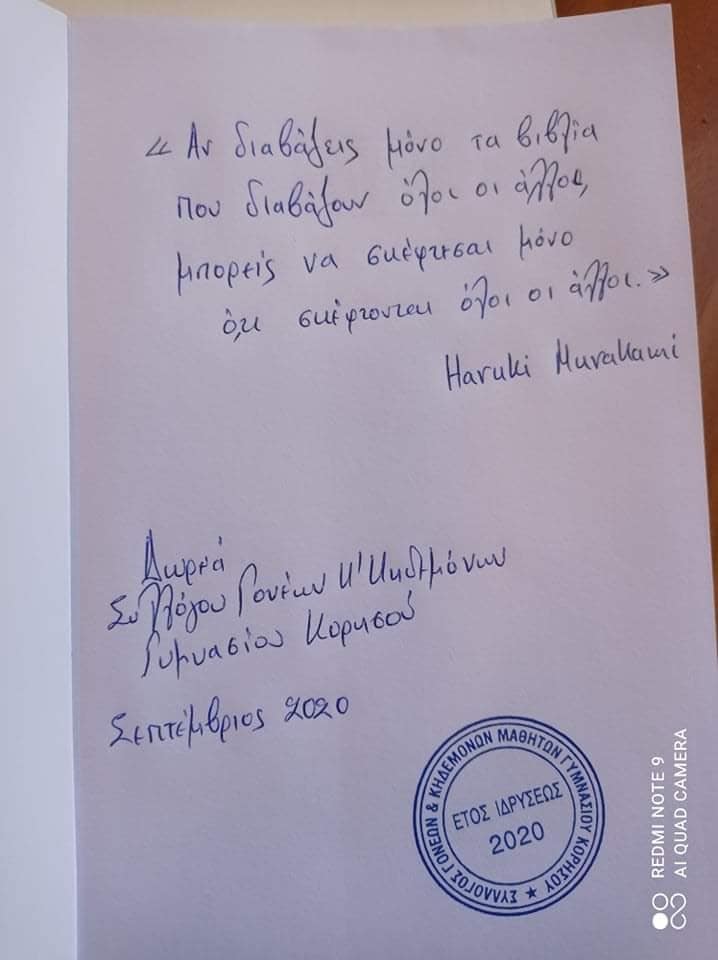 « Αν διαβάζεις μόνο τα βιβλία
που διαβάζουν όλοι οι άλλοι,
μπορείς να σκέφτεσαι μόνο
ό,τι σκέφτονται όλοι οι άλλοι.»
Haruki Murakami
Δωρεά
Συλλόγου Γονέων κ' Κηδεμόνων
Γυμνασίου Κορησού
Σεπτέμβριος 2020
ΣΥΛΛΟΓΟΣ ΓΟΝΕΩΝ & ΚΗΔΕΜΟΝΩΝ ΜΑΘΗΤΩΝ ΓΥΜΝΑΣΙΟΥ ΚΟΡΗΣΟΥ ★
ΕΤΟΣ ΙΔΡΥΣΕΩΣ
2020
REDMI NOTE 9
AI QUAD CAMERA